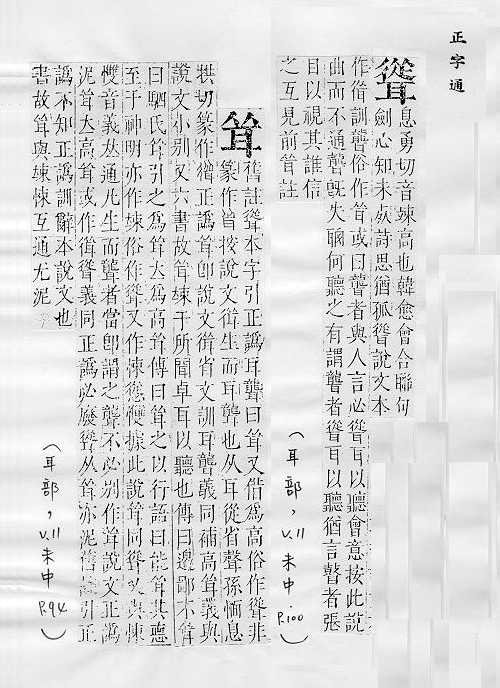 正字通
聳
息勇切音竦高也韓愈會合聯句
劍心知未死詩思猶孤聳說文本
作訓聾俗作耸或曰聾者與人言必聳耳以聽會意按此說
曲而不通聾旣失聰何聽之有謂聾者聳耳以聽猶言瞽者張
目以視其誰信
之互見前耸註
(耳部, v.11 未中 P.100)
耸
舊註聳本字引正譌耳聾曰耸又借爲高俗作聳非
篆作按說文生而耳聾也从耳從省聲孫愐息
拱切篆作正譌耸卽說文省文訓耳聾義同補高耸義與
說文小別又六書故耸竦于所聞卓耳以聽也傳曰邊鄙不耸
曰駟氏耸引之爲耸大爲高耸傳曰耸之以行語曰能耸其德
至于神明亦作竦俗作聳又作悚慫據此說耸同聳又與悚
音義夶通凡生而聾者當卽謂之聾不必別作耸說文正譌
泥耸大高耸或作聳義同正譌必廢聳从耸亦泥舊註引正
譌不知正譌訓辭本說文也
書故耸與竦悚互通尤泥
(耳部, v.11 未中 P.94)